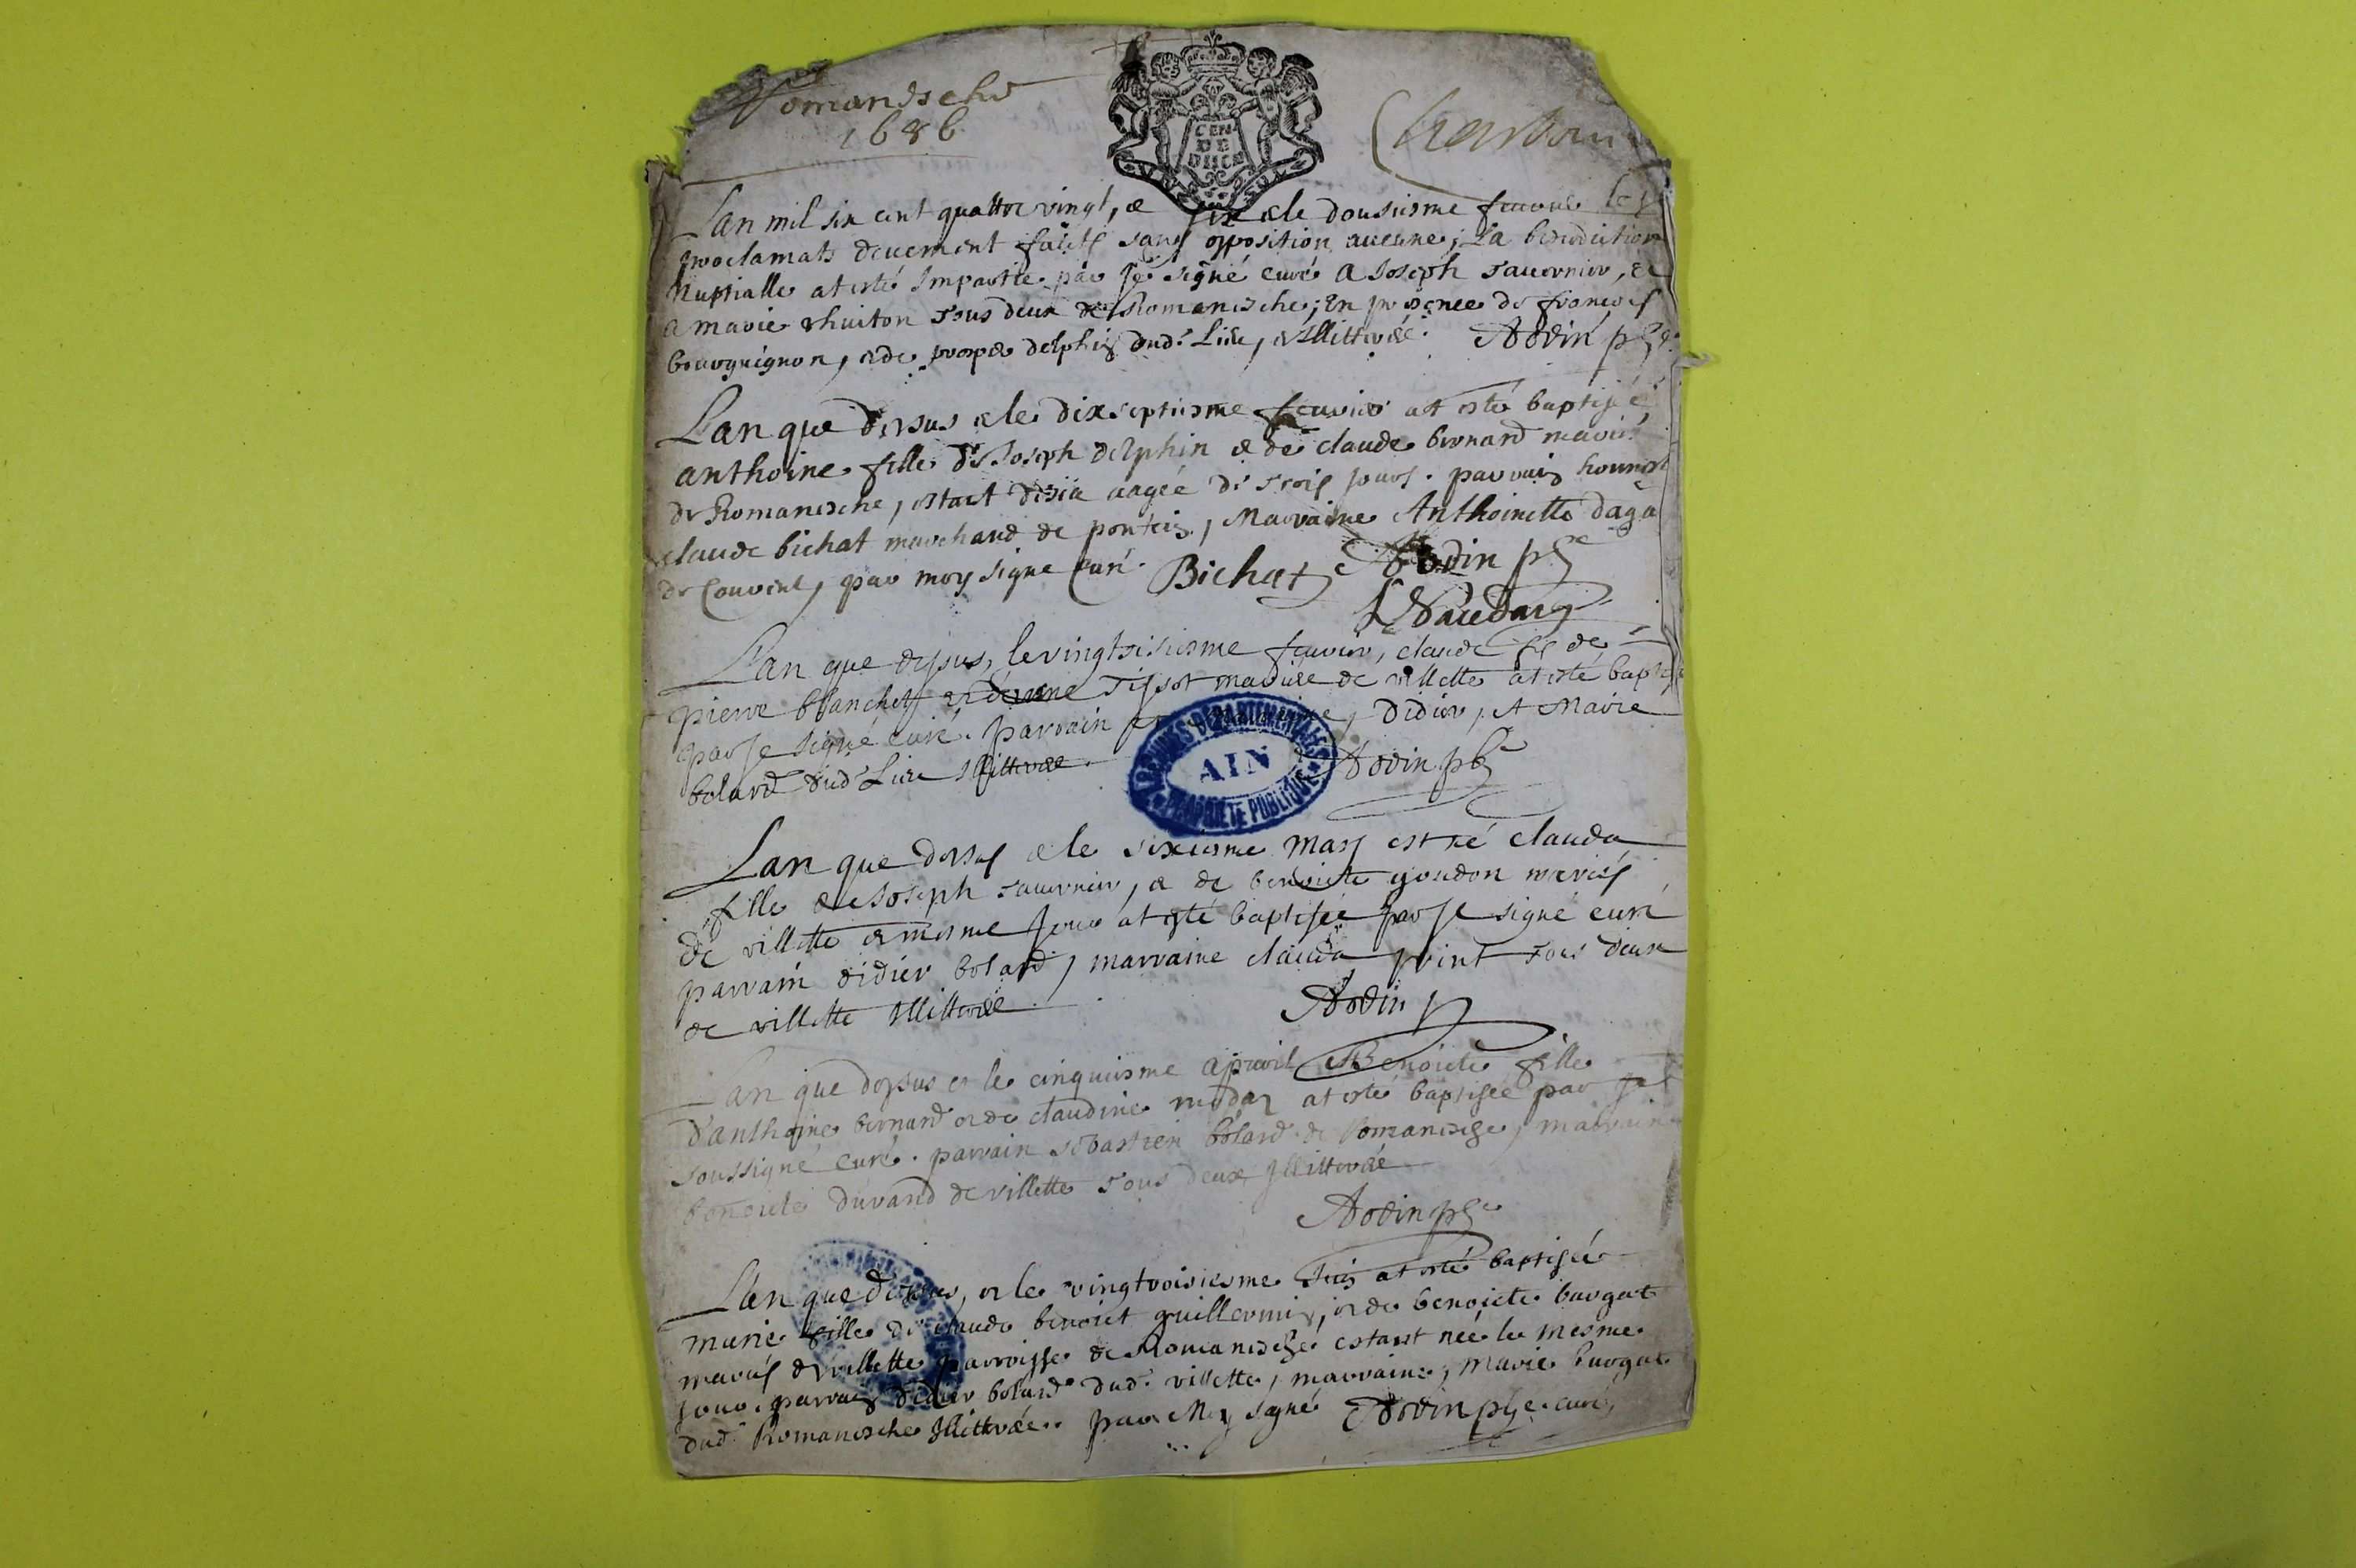 Romanesche
1686
CEN
DE
DIICE
Lan mil six cent quattre vingt, & six & le dousiesme feuvrié les
proclamats deuement faicts sans opposition aucune; La benediction
Nuptialle at esté Impartie par Je signé curé a Joseph Tavernier, &
a marie thuiton tous deux de Romanesche; En presence de francois
bourguignon, & de delphin dud. Lieu, Illitteréé. Dodin pbr
Lan que dessus & le dixseptiesme feuvrier at esté baptisée
anthoine fille de Joseph delphin & de claude bernard mariés
de Romanesche, estant desia aagée de trois jours. parrain honneste
claude bichat marchand de pontein, Marraine Anthoinette
de Couvent, par moy signe Curé. Bichat Dodin pbr
Lan que dessus, le vingtsisiesme feuvrier, claude fils de
pierre blanchet & tissot mariés de villette at esté baptisé
par Je signé curé. parrain Didier, Et Marie
bolard dud Lieu Illitteréé. Dodin pbr
ARCHIVES DEPARTEMENTALES
AIN
PROPRIETE PUBLIQUE
Lan que dessus & le sixiesme Mars est né clauda
fille de Joseph Tavernier, & de benoiete goudon mariés
de villette & mesme Jour at esté baptisée par Je signé curé
parrain didier bolard, marraine clauda point tous deux
de villette Illitteréé. Dodin p
Lan que dessus & le cinquiesme apvril Benoiete fille
d'anthoine bernard & de claudine at esté baptisée par Je
soussigné curé. parrain sebastien bolard de Romanesche, marraine
benoiete durand de villette tous deux Illitteréé
Dodin pbr
Lan que dessus, & le vingtroisiesme Juin at esté baptisée
marie fille de claude benoiet guillermin, & de benoiete burgat
mariés de villette parroisse de Romanesche estant née le mesme
jour. parrain didier bolard dud. villette, marraine, Marie burgat
dud. Romanesche Illitteréé. par Moy signé Dodin pbr curé